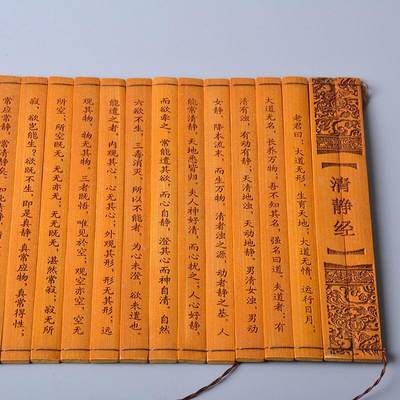 【清静经】
老君曰：大道无形，生育天地；大道无情，运行日月；
大道无名，长养万物；吾不知其名，强名曰道。夫道者：有
清有浊，有动有静；天清地浊，天动地静；男清女浊，男动
女静；降本流末，而生万物。清者浊之源，动者静之基。人
能常清静，天地悉皆归。夫人神好清，而心扰之；人心好静，
而欲牵之。常能遣其欲，而心自静，澄其心而神自清。自然
六欲不生，三毒消灭。所以不能者，为心未澄，欲未遣也。
能遣之者，内观其心，心无其心；外观其形，形无其形；远
观其物，物无其物。三者既悟，唯见於空；观空亦空，空无
所空；所空既无，无无亦无；无无既无，湛然常寂；寂无所
寂，欲岂能生？欲既不生，即是真静。真常应物，真常得性；
常应常静，常清静矣。如此